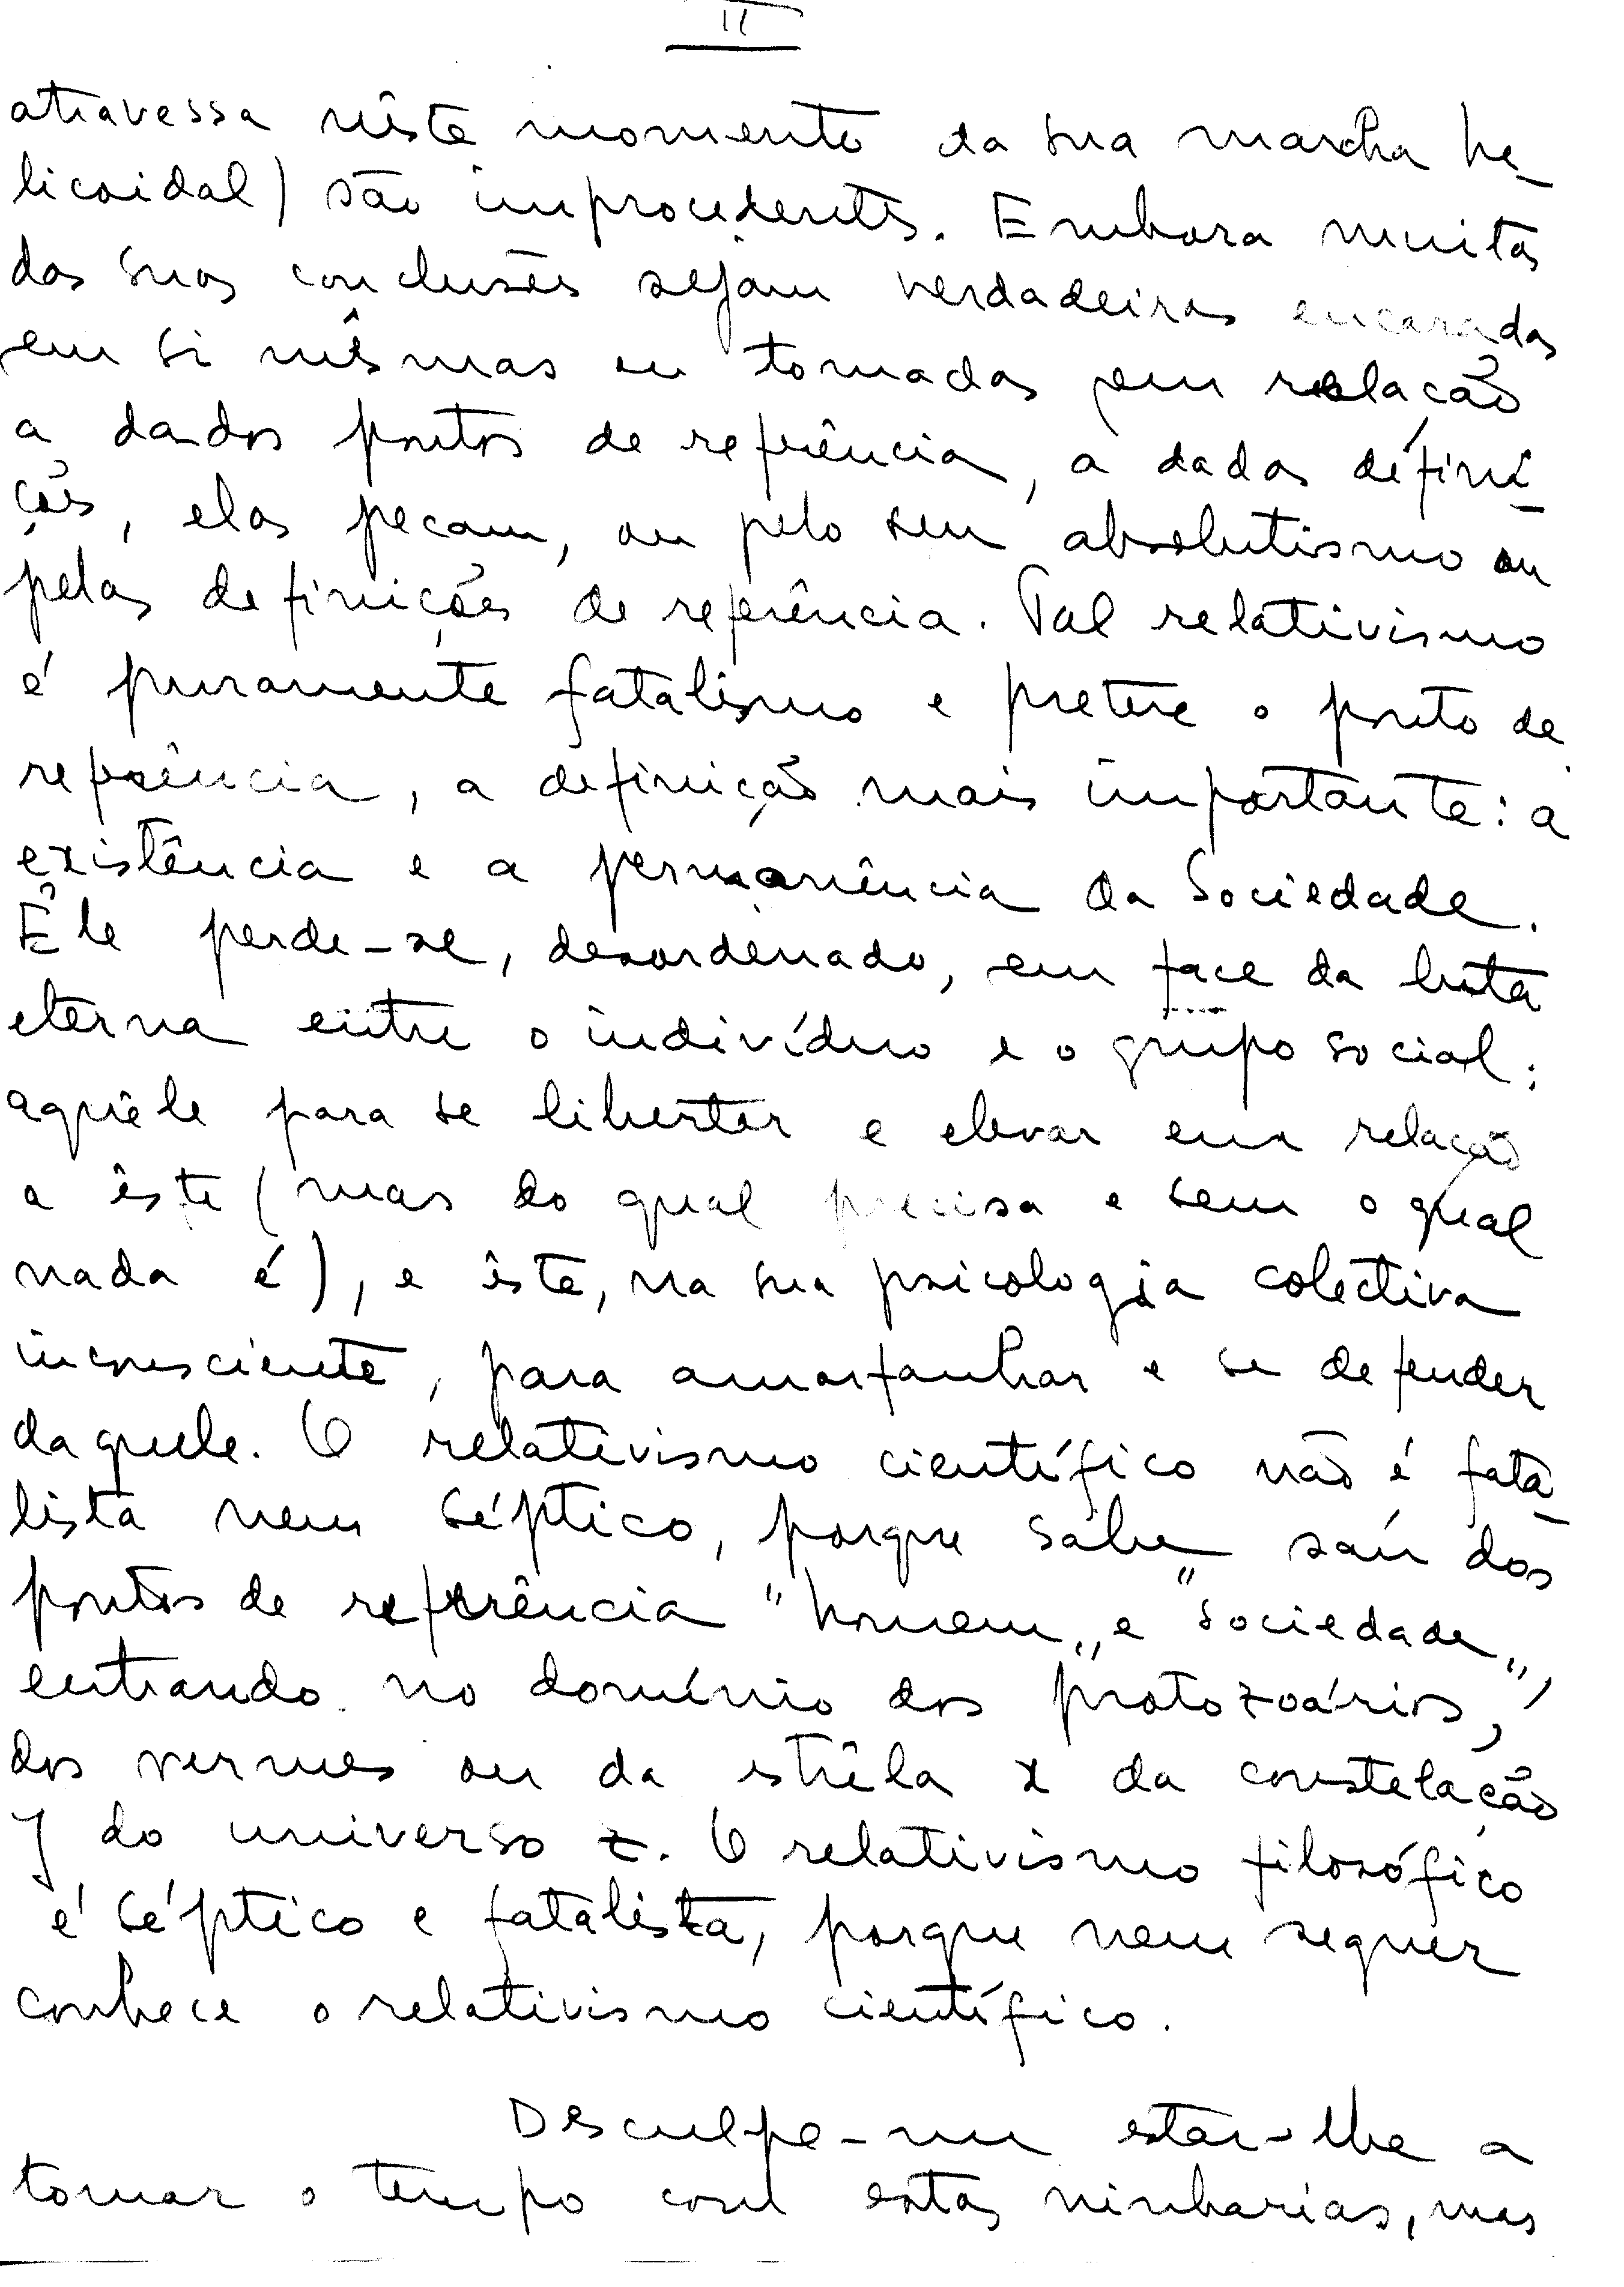 II
atravessa nêste momento da sua marcha he-
licoidal) são improcedentes. Embora muitas
das suas conclusões sejam verdadeiras encaradas
em si mêsmas ou tomadas em relação
a dados pontos de referência, a dadas defini-
ções, elas pecam, ou pelo seu absolutismo ou
pelas definições de referência. Tal relativismo
é puramente fatalismo e pretere o ponto de
referência, a definição mais importante: a
existência e a permanência da Sociedade.
Êle perde-se, desordenado, em face da luta
eterna entre o indivíduo e o grupo social:
aquêle para se libertar e elevar em relação
a êste (mas do qual precisa e sem o qual
nada é), e êste, na sua psicologia colectiva
inconsciente, para amarfanhar e se defender
daquele. O relativismo científico não é fata-
lista nem séptico, porque sabe saír dos
pontos de referência "homem" e "sociedade",
entrando no domínio dos "protozoários",
dos vermes ou da estrêla x da constelação
y do universo z. O relativismo filosófico
é séptico e fatalista, porque nem sequer
conhece o relativismo científico.
Desculpe-me estar-lhe a
tomar o tempo com estas ninharias, mas